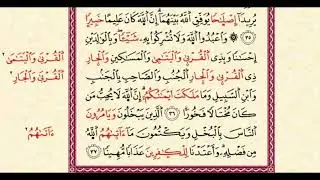 يُرِيدَا إِصْلَٰحًا يُوَفِّقِ ٱللَّهُ بَيْنَهُمَا إِنَّ ٱللَّهَ كَانَ عَلِيمًا خَبِيرًا
٣٥ وَٱعْبُدُوا ٱللَّهَ وَلَا تُشْرِكُوا بِهِ شَيْـًٔا وَبِٱلْوَٰلِدَيْنِ
إِحْسَٰنًا وَبِذِى ٱلْقُرْبَىٰ وَٱلْيَتَٰمَىٰ وَٱلْمَسَٰكِينِ وَٱلْجَارِ
ذِى ٱلْقُرْبَىٰ وَٱلْجَارِ ٱلْجُنُبِ وَٱلصَّاحِبِ بِٱلْجَنۢبِ
وَٱبْنِ ٱلسَّبِيلِ وَمَا مَلَكَتْ أَيْمَٰنُكُمْ إِنَّ ٱللَّهَ لَا يُحِبُّ مَن
كَانَ مُخْتَالًا فَخُورًا ٣٦ ٱلَّذِينَ يَبْخَلُونَ وَيَامُرُونَ
ٱلنَّاسَ بِٱلْبُخْلِ وَيَكْتُمُونَ مَا ءَاتَىٰهُمُ ٱللَّهُ
مِن فَضْلِهِ وَأَعْتَدْنَا لِلْكَٰفِرِينَ عَذَابًا مُّهِينًا ٣٧
ٱلْقُرْبَىٰ وَٱلْيَتَٰمَىٰ
ٱلْقُرْبَىٰ وَٱلْجَارِ
ءَاتَىٰهُمُ
ٱلْقُرْبَىٰ وَٱلْيَتَٰمَىٰ
ٱلْقُرْبَىٰ وَٱلْجَارِ
ءَاتَىٰهُمُ